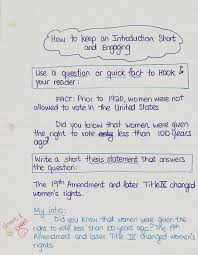 How to Keep an Introduction Short
and Engaging
Use a question or quick fact to Hook
your reader:
FACT: Prior to 1920, women were not
allowed to vote in the United States
Did you know that women, were given
the right to vote only less than 100 years
ago?
Write a short thesis statement that answers
the question:
The 19th Amendment and later Title IX changed
women's rights.
My Intro:
Did you know that women were given
the right to vote less than 100 years ago? The 19th
Amendment and later Title IX changed women's
rights.